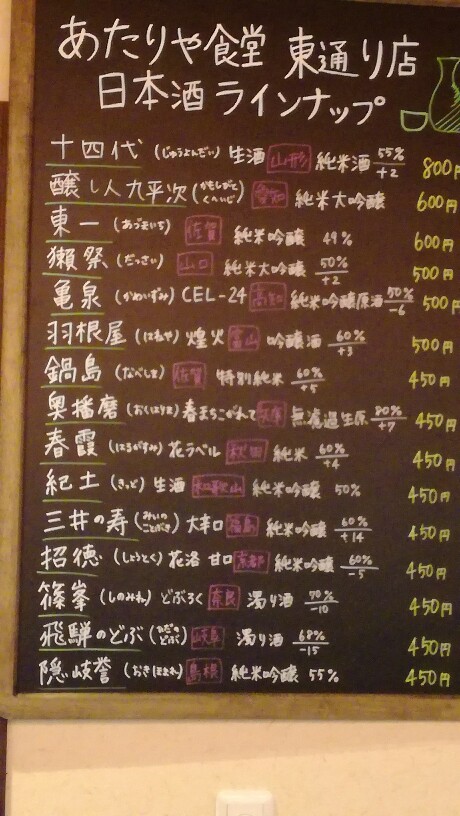 あたりや食堂 東通り店
日本酒ラインナップ
十四代 (じゅうよんだい) 生酒 山形 純米酒 55% +2 800円
醸し人九平次 (かもしびとくへいじ) 愛知 純米大吟醸 600円
東一 (あづまいち) 佐賀 純米吟醸 49% 600円
獺祭 (だっさい) 山口 純米大吟醸 50% +2 500円
亀泉 (かめいずみ) CEL-24 高知 純米吟醸原酒 50% -6 500円
羽根屋 (はねや) 煌火 富山 吟醸酒 60% +3 500円
鍋島 (なべしま) 佐賀 特別純米 60% +5 450円
奥播磨 (おくはりま) 春まちこがれて 兵庫 無濾過生原 80% +7 450円
春霞 (はるがすみ) 花ラベル 秋田 純米 60% +4 450円
紀土 (きっど) 生酒 和歌山 純米吟醸 50% 450円
三井の寿 (みいのことぶき) 大辛口 福島 純米吟醸 60% +14 450円
招徳 (しょうとく) 花洛 甘口 京都 純米吟醸 60% -5 450円
篠峯 (しのみね) どぶろく 奈良 濁り酒 70% -10 450円
飛騨のどぶ (ひだのどぶ) 岐阜 濁り酒 68% -15 450円
隠岐誉 (おきほまれ) 島根 純米吟醸 55% 450円